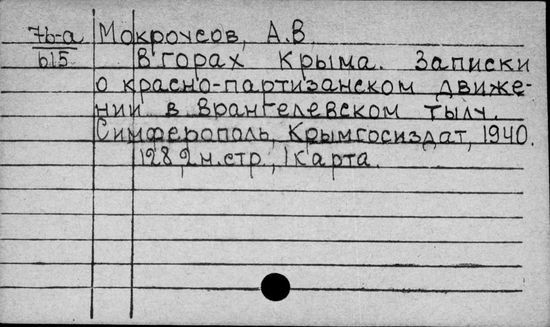 7b-a Мокроусов, А.В.
b15 В горах Крыма. Записки
о красно-партизанском движе-
нии в врангелевском тылу.
Симферополь, Крымгосиздат, 1940.
128,2 н.стр., 1 карта.